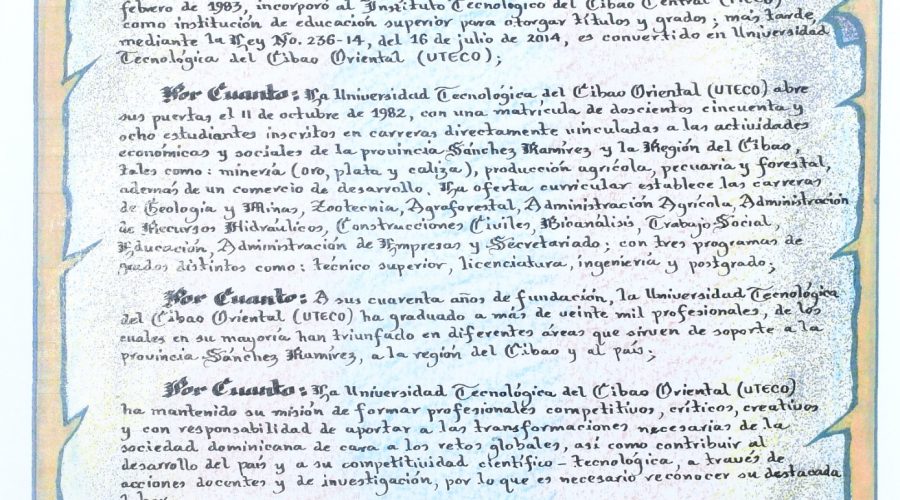 febrero de 1983, incorporó al Instituto Tecnológico del Cibao Central
como institución de educación superior para otorgar títulos y grados; más tarde,
mediante la Ley No. 236-14, del 16 de julio de 2014, es convertido en Universidad
Tecnológica del Cibao Oriental (UTECO);
Por Cuanto: La Universidad Tecnológica del Cibao Oriental (UTECO) abre
sus puertas el 11 de octubre de 1982, con una matrícula de doscientos cincuenta y
ocho estudiantes inscritos en carreras directamente vinculadas a las actividades
económicas y sociales de la provincia Sánchez Ramírez y la Región del Cibao,
tales como: minería (oro, plata y caliza), producción agrícola, pecuaria y forestal,
además de un comercio de desarrollo. La oferta curricular establece las carreras
de Geología y Minas, Zootecnia, Agraforestal, Administración Agrícola, Administración
de Recursos Hidráulicos, Construcciones Civiles, Bioanálisis, Trabajo Social,
Educación, Administración de Empresas y Secretariado; con tres programas de
grados distintos como: técnico superior, licenciatura, ingeniería y postgrado;
Por Cuanto: A sus cuarenta años de fundación, la Universidad Tecnológica
del Cibao Oriental (UTECO) ha graduado a más de veinte mil profesionales, de los
cuales en su mayoría han triunfado en diferentes áreas que sirven de soporte a la
provincia Sánchez Ramírez, a la región del Cibao y al país;
Por Cuanto: La Universidad Tecnológica del Cibao Oriental (UTECO)
ha mantenido su misión de formar profesionales competitivos, críticos, creativos
y con responsabilidad de aportar a las transformaciones necesarias de la
sociedad dominicana de cara a los retos globales, así como contribuir al
desarrollo del país y a su competitividad científico-tecnológica, a través de
acciones docentes y de investigación, por lo que es necesario reconocer su destacada